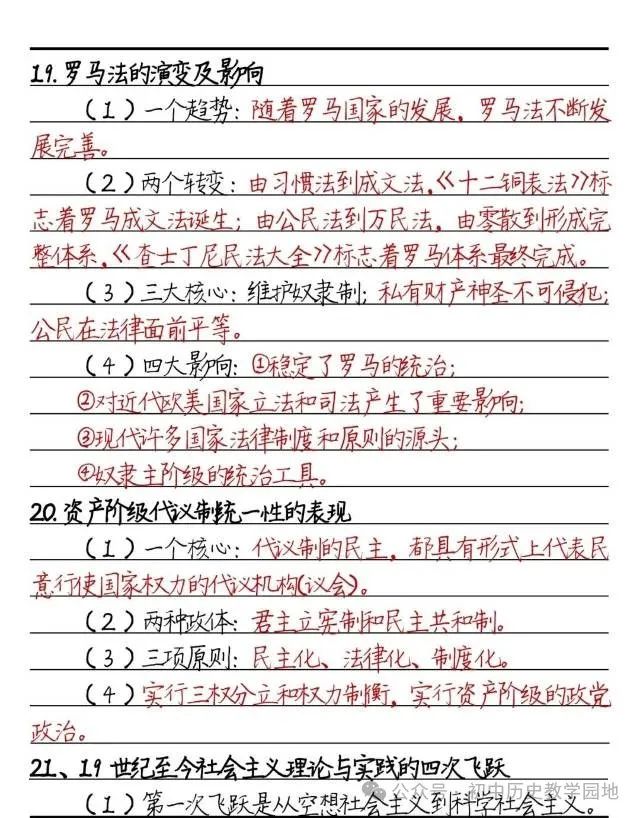 19.罗马法的演变及影响
（1）一个趋势：随着罗马国家的发展，罗马法不断发
展完善。
（2）两个转变：由习惯法到成文法，《十二铜表法》标
志着罗马成文法诞生；由公民法到万民法，由零散到形成完
整体系，《查士丁尼民法大全》标志着罗马体系最终完成。
（3）三大核心：维护奴隶制；私有财产神圣不可侵犯；
公民在法律面前平等。
（4）四大影响：①稳定了罗马的统治；
②对近代欧美国家立法和司法产生了重要影响；
③现代许多国家法律制度和原则的源头；
④奴隶主阶级的统治工具。
20.资产阶级代议制统一性的表现
（1）一个核心：代议制的民主，都具有形式上代表民
意行使国家权力的代议机构(议会)。
（2）两种政体：君主立宪制和民主共和制。
（3）三项原则：民主化、法律化、制度化。
（4）实行三权分立和权力制衡，实行资产阶级的政党
政治。
21、19世纪至今社会主义理论与实践的四次飞跃
（1）第一次飞跃是从空想社会主义到科学社会主义。
公众号·初中历史教学园地